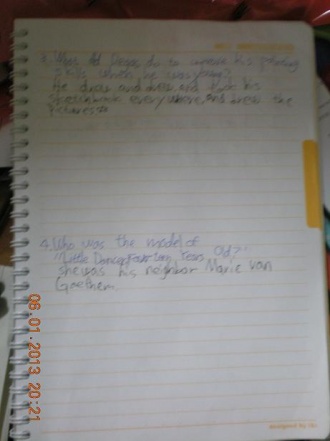 3. What did Degas do to increase his painting
skills when he was young?
He drew and drew and took his
sketchbook everywhere, and drew the
pictures.
4. Who was the model of
"Little Dancer Fourteen Years Old?"
she was his neighbor Marie van
Goethem.
06.01.2013 20:21